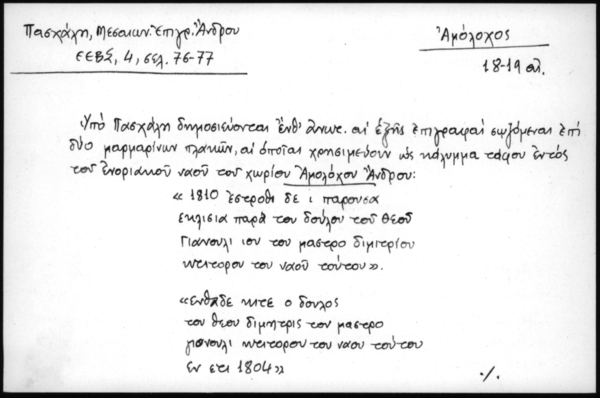 Πασχάλη, Μεσαιων. Ἐπιγρ. Ἄνδρου
ΕΕΒΣ, 4, σελ. 76-77
Ἀμόλοχος
18-19 αἰ.
Ὑπό Πασχάλη δημοσιεύονται ἔνθ' ἄνωτ. αἱ ἑξῆς ἐπιγραφαί σωζόμεναι ἐπί
δύο μαρμαρίνων πλακῶν, αἱ ὁποῖαι χρησιμεύουν ὡς κάλυμμα τάφου ἐντός
τοῦ ἐνοριακοῦ ναοῦ τοῦ χωρίου Ἀμολόχου Ἄνδρου:
« 1810 ἐστρόθι δε ι παρουσα
εκλισια παρὰ του δούλου τοῦ θεοῦ
Γιανουλι ιου του μαστρο διμιτρίου
κτιτορου του ναοῦ τούτου».
«Ενθαδε κιτε ο δουλος
του θεου διμητρις του μαστρο
γιανουλι κτιτορου του ναου τούτου
εν ετι 1804»
./.